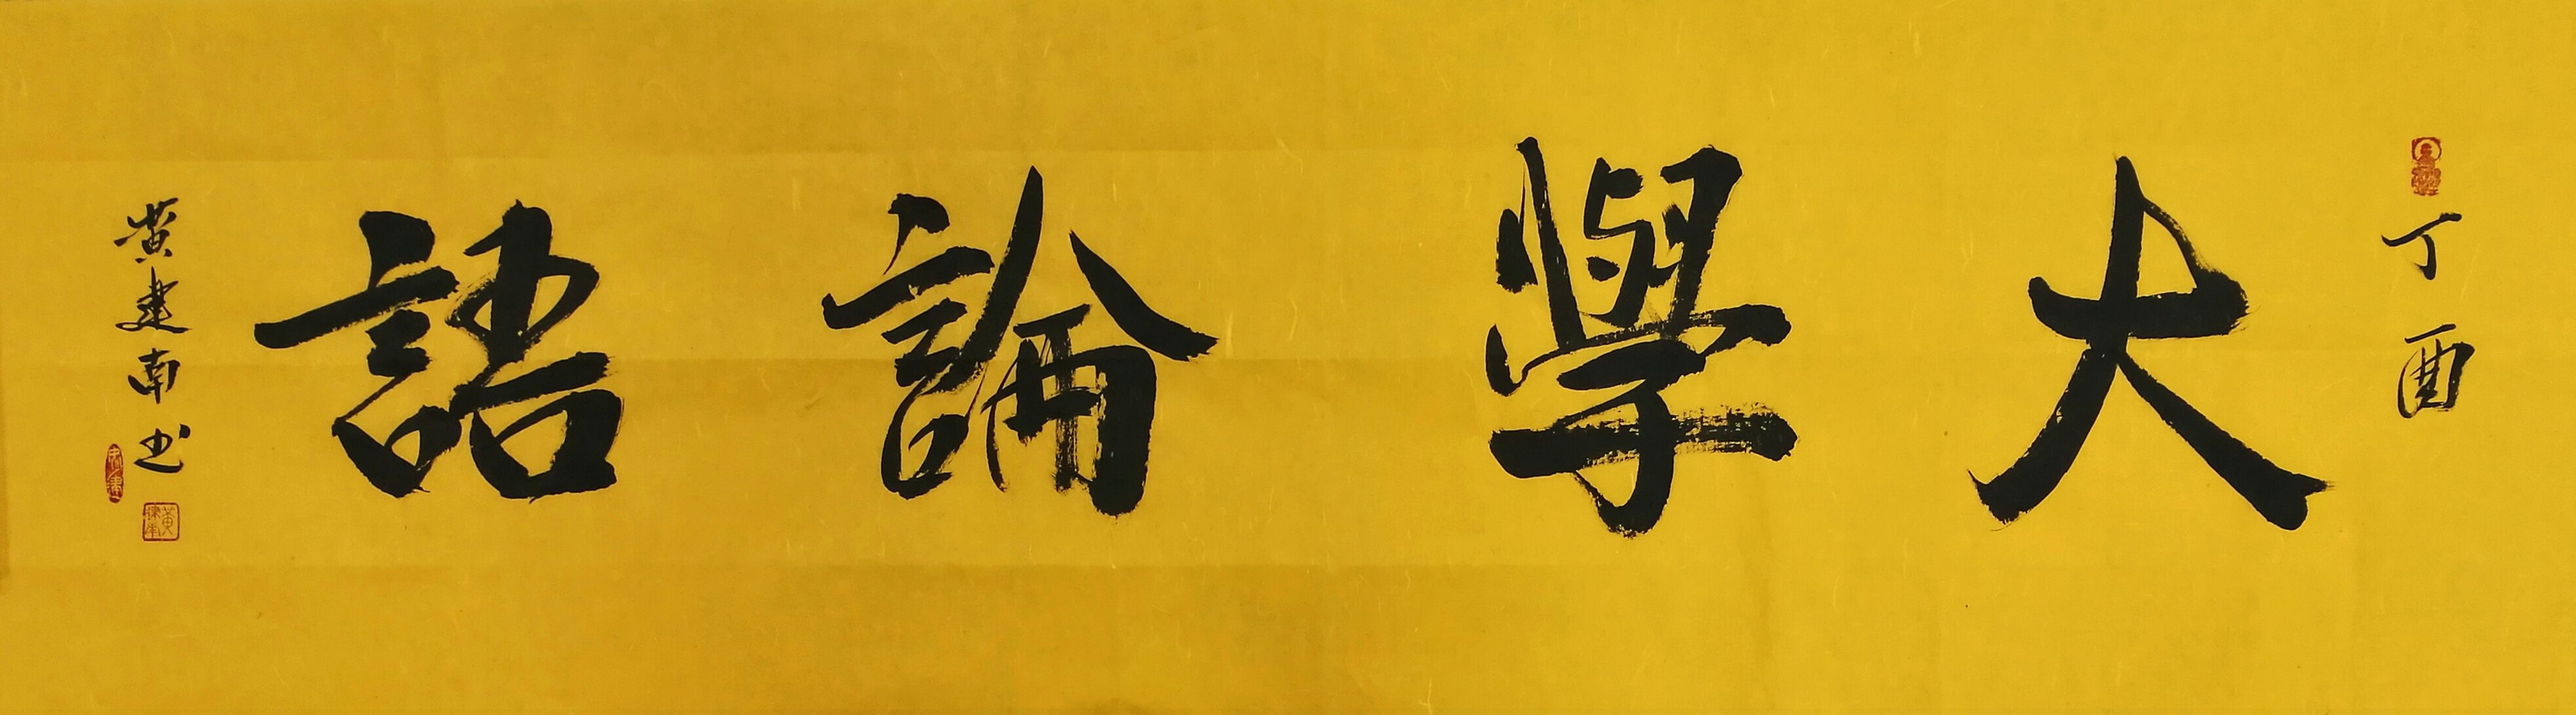 丁酉
大學論語
黄建南书